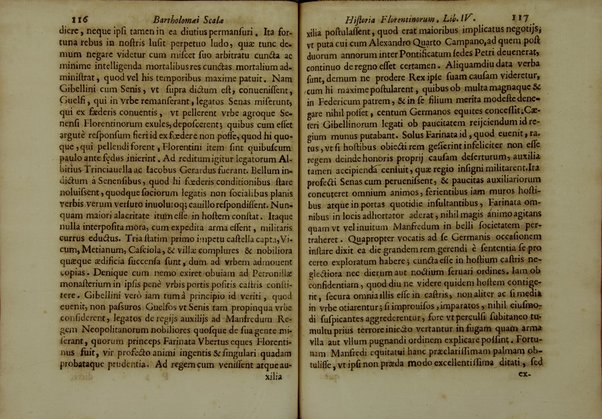 116 Bartholomæi Scala
diere, neque ipsi tamen in ea diutius permansuri. Ita for-
tuna rebus in nostris lusit perpetuo ludo, quæ tunc de-
mum negare videtur cum misscet suo arbitratu cuncta ac
minime intelligenda mortalibus res cunctas mortalium ad-
ministrat, quod vel his temporibus maxime patuit. Nam
Gibellini cum Senis, vt supra dictum est, conuenissent,
Guelfi, qui in vrbe remanserant, legatos Senas miserunt,
qui ex fœderis conuentis, vt pellerent vrbe agroque Se-
nensi Florentinorum exules, deposcerent; quibus cum esset
argute responsum fieri id ex fœdere non posse, quod hi quo-
que, qui pellendi forent, Florentini item sint quibuscum
paulo ante fœdus inierint. Ad reditum igitur legatorum Al-
birius Trinciauella ac Iacobus Gerardus fuerant. Bellum in-
dictum a Senensibus, quod hi fœderis conditionibus stare
noluissent, quodque sociorum legatis non socialibus planis
verbis verum versuto inuoluoq; cauillo respondissent. Nun-
quam maiori alacritate itum esse in hostem constat. Itaque
nulla interposita mora, cum expedita arma essent, militaris
currus eductus. Tria statim primo impetu castella capta, Vi-
cum, Metianum, Casciola, & villæ complures & nobiliora
quæque ædificia succensa sunt, dum ad vrbem admouent
copias. Denique cum nemo exiret obuiam ad Petronillæ
monasterium in ipsis penè vrbis portis positis castris consti-
tere. Gibellini verò iam tum à principio id veriti, quod
euenit, non passuros Guelfos vt Senis tam propinqua vrbe
considerent, legatos de regijs auxilijs ad Manfredum Re-
gem Neopolitanorum nobiliores quosque de sua gente mi-
serant, quorum princeps Farinata Vbertus eques Florenti-
nus fuit, vir profecto animi ingentis & singulari quadam
probataque prudentia. Ad regem cum venissent atque au-
xilia
Historia Florentinorum, Lib. IV. 117
xilia postulassent, quod erat maioribus implicatus negotijs;
vt puta cui cum Alexandro Quarto Campano, ad quem post
duorum annorum inter Pontificatum sedes Petri deuenerat,
continuo de regno esset certamen. Aliquamdiu data verba
sunt, demum ne prodere Rex ipse suam causam videretur,
cum hi maxime postularent, quibus ob multa magnaque &
in Federicum patrem, & in se filium merita modeste dene-
gare nihil posset, centum Germanos equites concessit; Cæ-
teri Gibellinorum legati ob paucitatem reijciendum id re-
gium munus putabant. Solus Farinata id, quod euenit, ra-
tus, vt si hostibus obiecti rem gesserint infeliciter non esse
regem deinde honoris proprij causam deserturum, auxilia
tamen accipienda censuit, quæ regio insigni militarent. Ita
profecti Senas cum peruenissent, & paucitas auxiliariorum
concuteret omnium animos, ferientibus iam muros hosti-
bus atque in portas quotidie insultantibus, Farinata om-
nibus in locis adhortator aderat, nihil magis animo agitans
quam vt vel inuitum Manfredum in belli societatem per-
traheret. Quapropter vocatis ad se Germanis occasionem
instare dixit ea die grandem rem gerendi è sententia se pro
certo exploratum habere; cuncta esse in hostium castris ne-
glectiora nec dierum aut noctium seruari ordines. Iam ob
confidentiam, quod diu ne videre quidem hostem contige-
rit, secura omnia illis esse in castris, non aliter ac si media
in vrbe otiarentur; si improuisos, imparatos, nihil eiusmo-
di suspicantes aggrederentur, fore vt perculsi subitaneo tu-
multu prius terrore iniecto vertantur in fugam quam arma
vlla aut vllum pugnandi ordinem explicare possint. Fortu-
nam Manfredi equitatui hanc præclarissimam palmam ob-
tulisse, vt ipsi non præda modo excellentissima ditati, sed
ex-